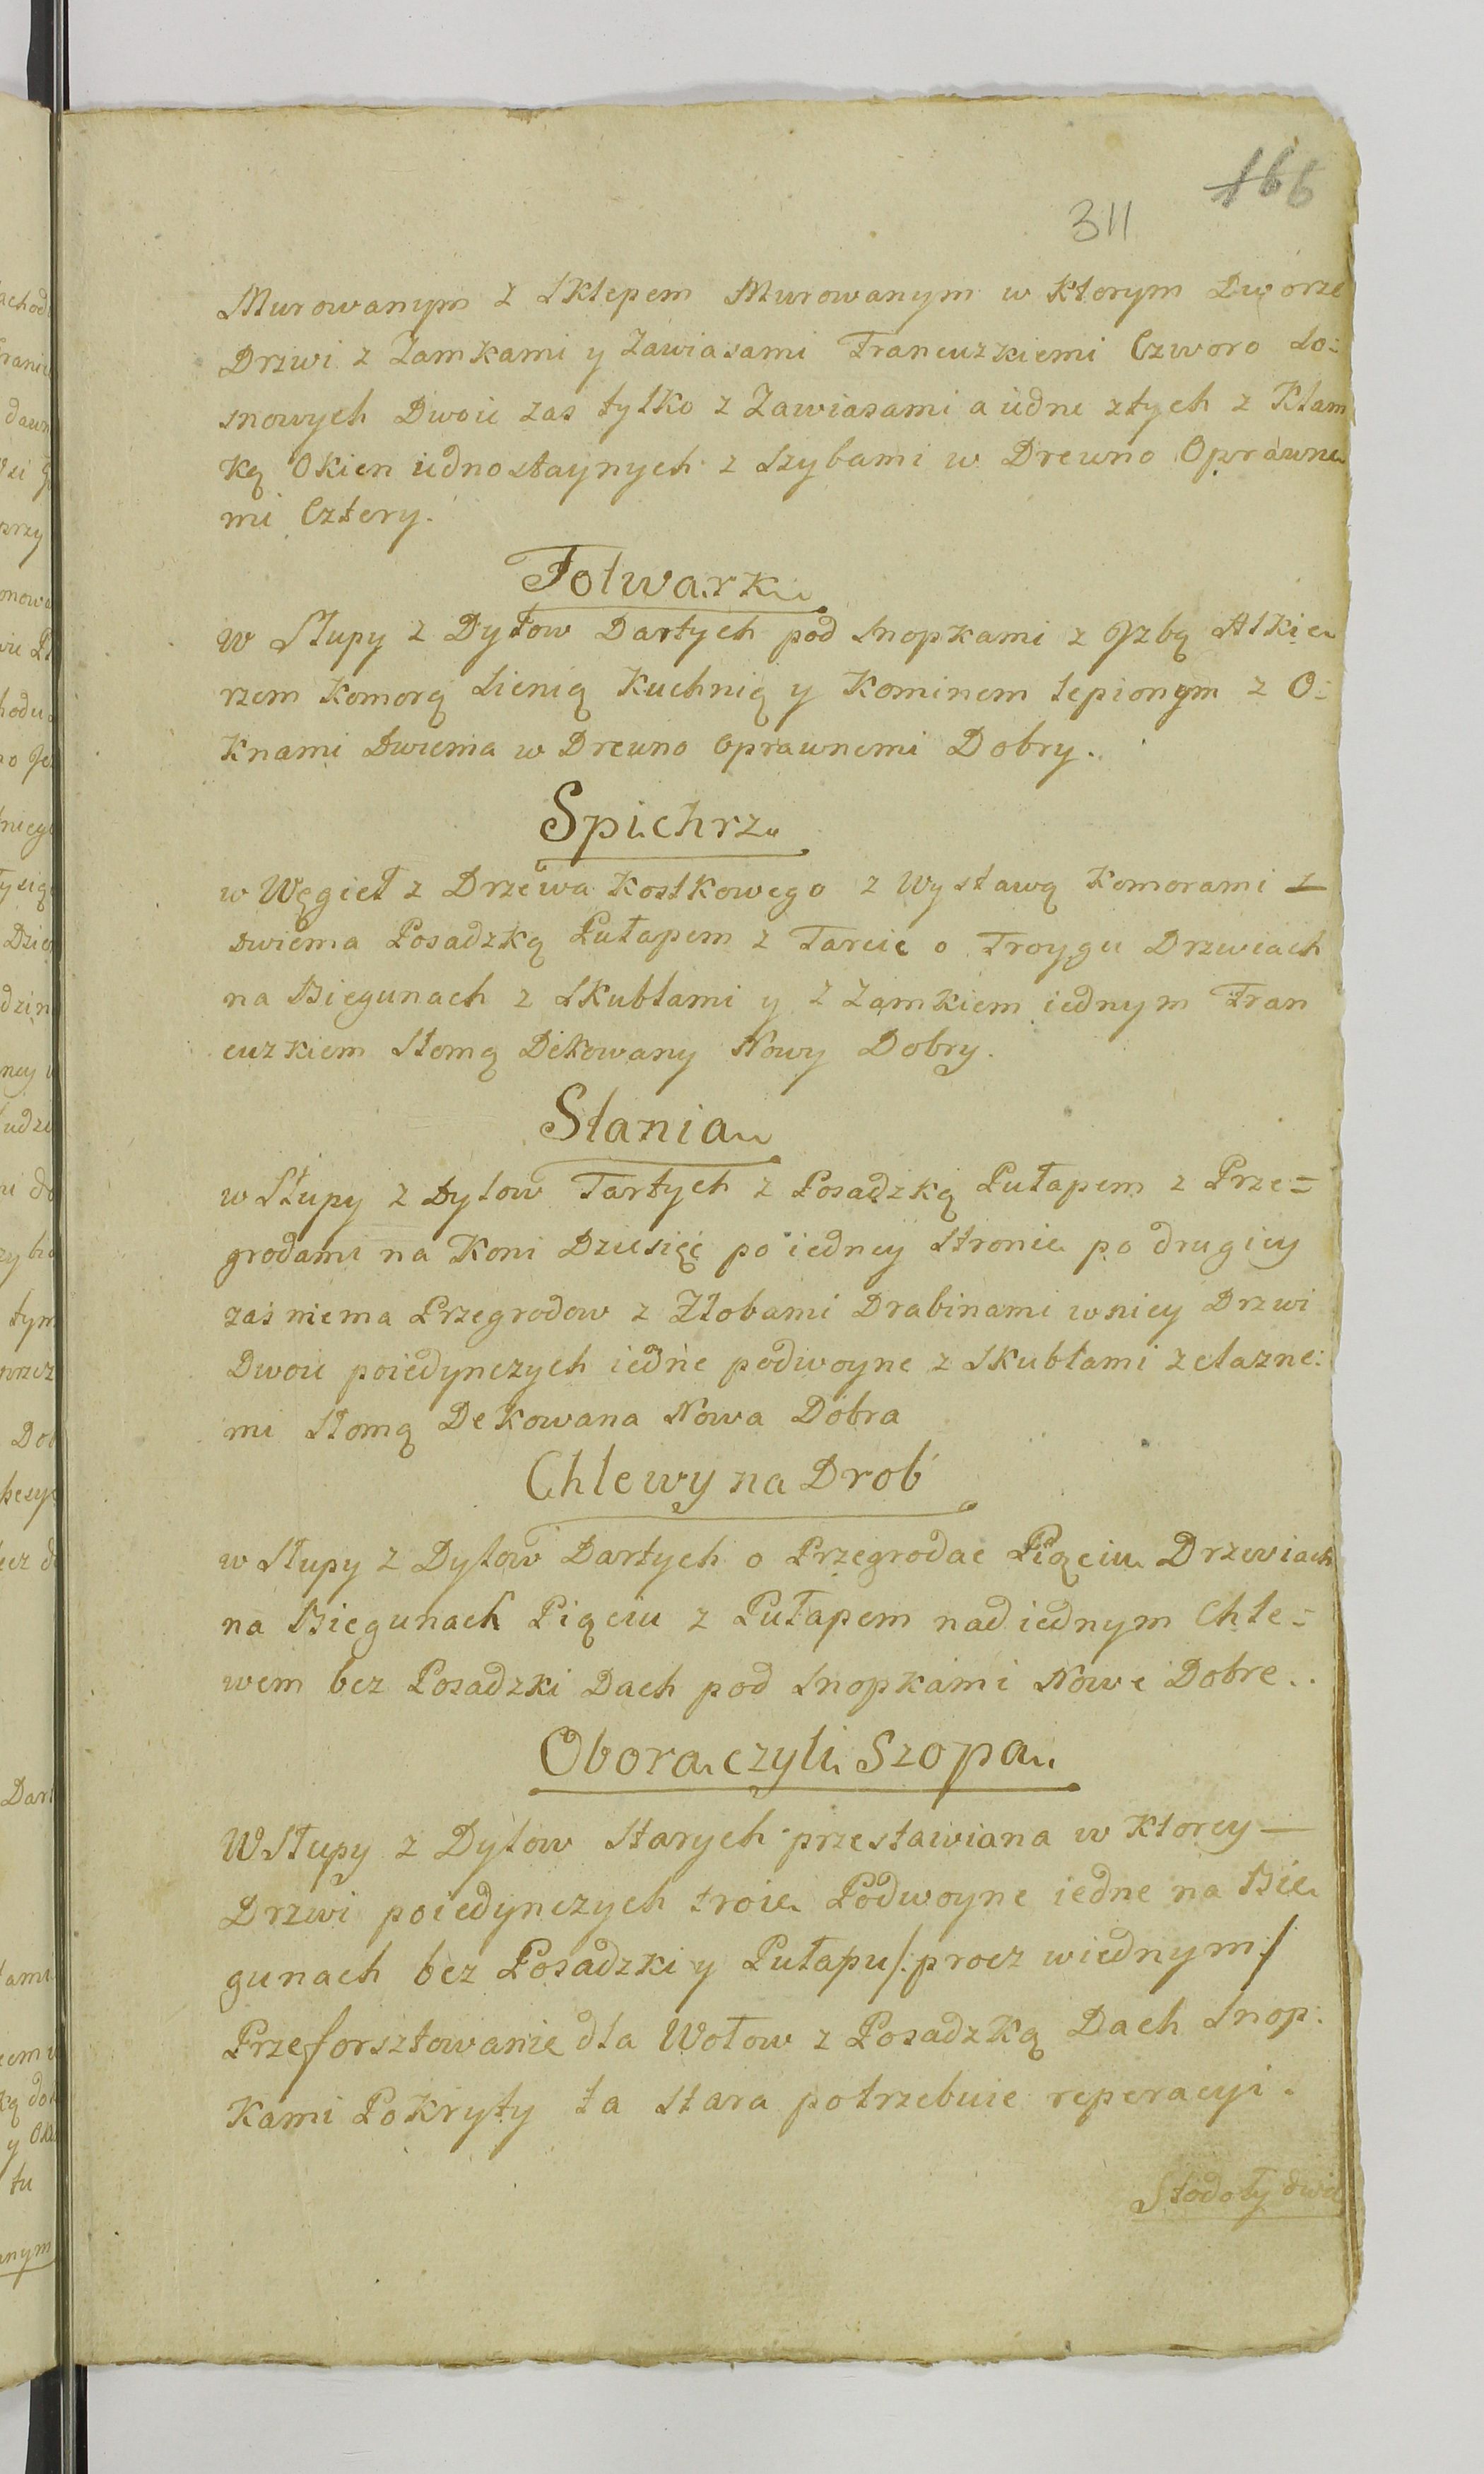 166
311
Murowanym z Sklepem Murowanym w ktorym Dworze
Drzwi z Zamkami y Zawiasami Francuzkiemi Czworo So:
snowych Dwoie zas tylko z Zawiasami a iedne ztych z Klam
ką Okien iednostaynych z Szybami w Drewno Oprawne
mi Cztery.
Folwark
w Słupy z Dyłow Dartych pod Snopkami z Jzbą Alkie
rzem Komorą Sienią Kuchnią y Kominem lepionym z O:
knami Dwiema w Drewno oprawnemi Dobry.
Spichrz
w Węgieł z Drzewa Kostkowego z Wystawą Komorami z
Dwiema Posadzką Pułapem z Tarcic o Troygu Drzwiach
na Biegunach z Skublami y z Zamkiem iednym Fran
cuzkiem Słomą Dekowany Nowy Dobry.
Stania
w Słupy z Dylow Tartych z Posadzką Pułapem z Prze=
grodami na Koni Dziesięć po iedney Stronie po drugiey
zaś niema Przegrodow z Złobami Drabinami wniey Drzwi
Dwoie poiedynczych iedne podwoyne z Skublami zelazne:
mi Słomą Dekowana Nowa Dobra
Chlewy na Drob
w Słupy z Dylow Dartych o Przegrodac Pięciu Drzwiach
na Biegunach Pięciu z Pułapem nad iednym Chle=
wem bez Posadzki Dach pod Snopkami Nowe Dobre..
Obora czyli Szopa
W Słupy z Dylow Starych przestawiana w Ktorey —
Drzwi poiedynczych troie Podwoyne iedne na Bie
gunach bez Posadzki y Pułapu /: procz wiednym :/
Przeforsztowanie dla Wołow z Posadzką Dach Snop:
kami Pokryty ta Stara potrzebuie reperacyi.
Stodoły dwie